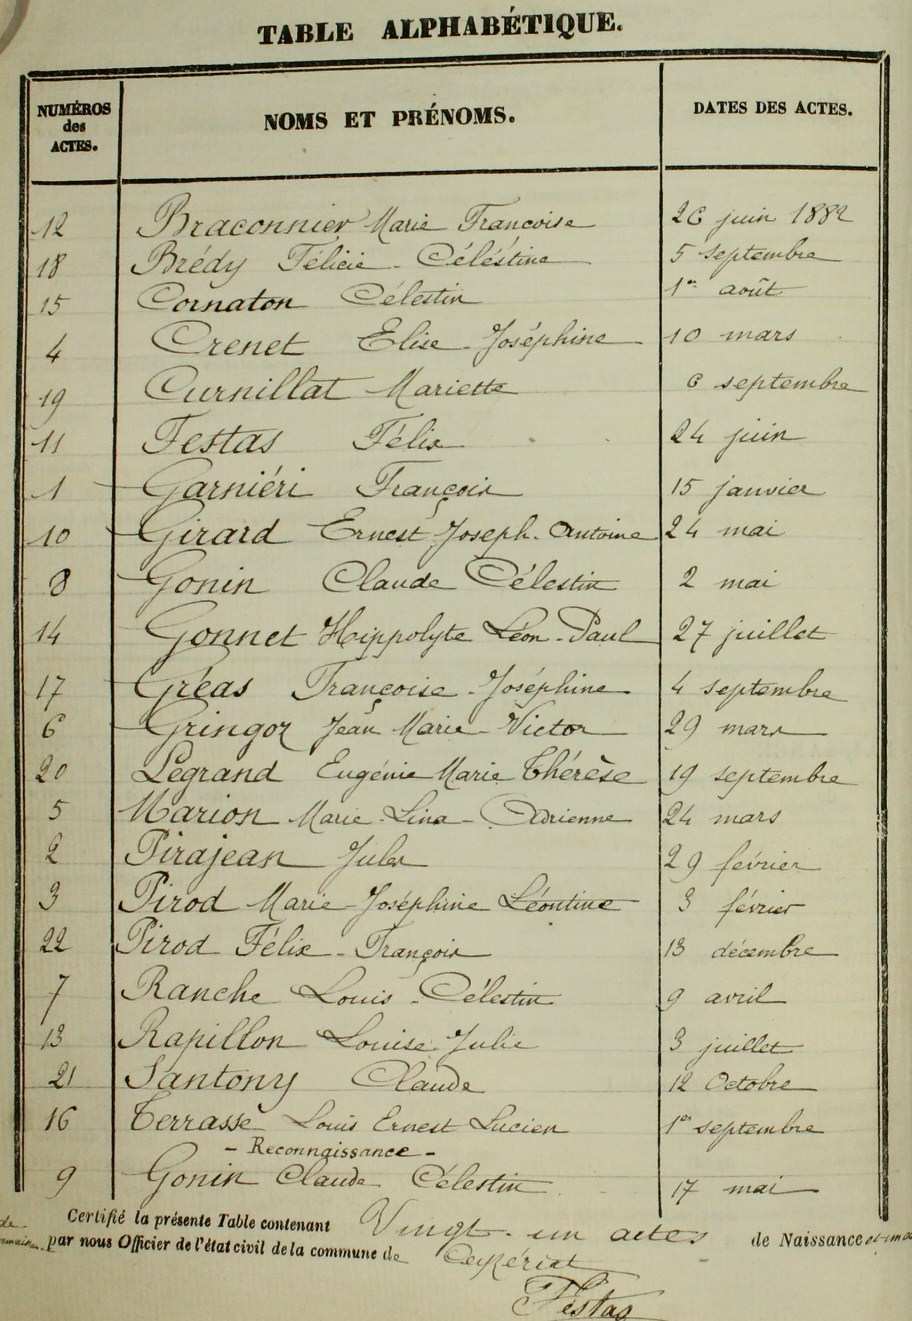 TABLE ALPHABÉTIQUE.
NUMÉROS des ACTES. NOMS ET PRÉNOMS. DATES DES ACTES.
12 Braconnier Marie Françoise 26 juin 1882
18 Brédy Félicie Céléstine 5 septembre
15 Cornaton Célestin 1er août
4 Crenet Elise Joséphine 10 mars
19 Curnillat Mariette 6 septembre
11 Festas Félix 24 juin
1 Garniéri François 15 janvier
10 Girard Ernest Joseph Antoine 24 mai
8 Gonin Claude Célestin 2 mai
14 Gonnet Hippolyte Léon Paul 27 juillet
17 Gréas Françoise Joséphine 4 septembre
6 Gringoz Jean Marie Victor 29 mars
20 Legrand Eugénie Marie Thérèse 19 septembre
5 Marion Marie Lina Adrienne 24 mars
2 Pirajean Jules 29 février
3 Pirod Marie Joséphine Léontine 3 février
22 Pirod Félix François 13 décembre
7 Ranche Louis Célestin 9 avril
13 Rapillon Louise Julie 3 juillet
21 Santony Claude 12 Octobre
16 Terrasse Louis Ernest Lucien 1er septembre
- Reconnaissance -
9 Gonin Claude Célestin 17 mai
Certifié la présente Table contenant Vingt-un actes de Naissance
par nous Officier de l'état civil de la commune de Ceyzériat
Festas